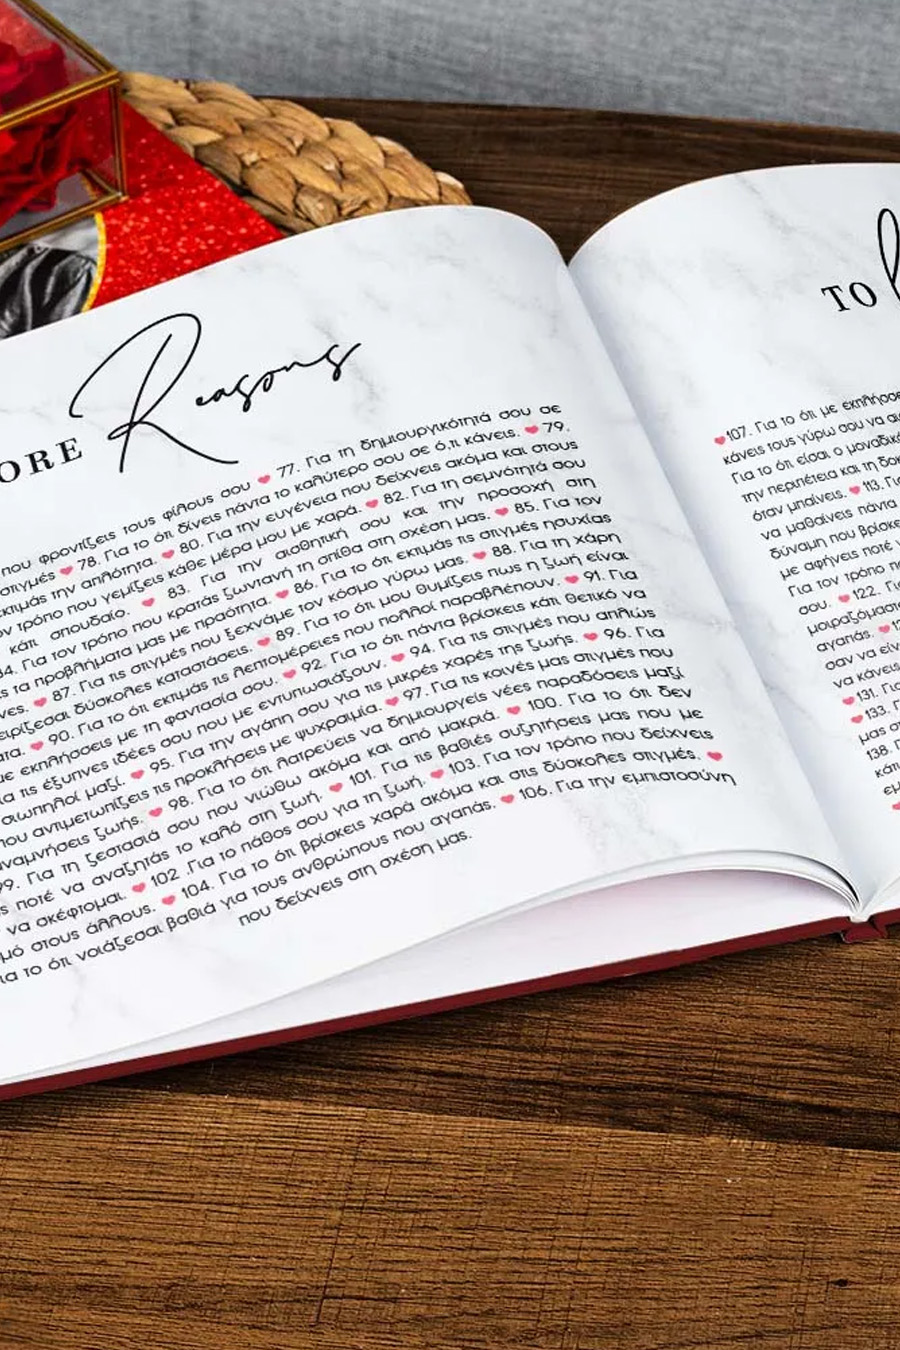 ORE Reasons
που φροντίζεις τους φίλους σου ❤ 77. Για τη δημιουργικότητά σου σε
στιγμές ❤ 78. Για το ότι δίνεις πάντα το καλύτερο σου σε ό,τι κάνεις. ❤ 79.
εκτιμάς την απλότητα. ❤ 80. Για την ευγένεια που δείχνεις ακόμα και στους
ον τρόπο που γεμίζεις κάθε μέρα μου με χαρά. ❤ 82. Για τη σεμνότητά σου
κάτι σπουδαίο. ❤ 83. Για την αισθητική σου και την προσοχή στη
84. Για τον τρόπο που κρατάς ζωντανή τη σπίθα στη σχέση μας. ❤ 85. Για τον
ς τα προβλήματα μας με πραότητα. ❤ 86. Για το ότι εκτιμάς τις στιγμές ησυχίας
νες. ❤ 87. Για τις στιγμές που ξεχνάμε τον κόσμο γύρω μας. ❤ 88. Για τη χάρη
ειρίζεσαι δύσκολες καταστάσεις. ❤ 89. Για το ότι μου θυμίζεις πως η ζωή είναι
τα. ❤ 90. Για το ότι εκτιμάς τις λεπτομέρειες που πολλοί παραβλέπουν. ❤ 91. Για
με εκπλήσσεις με τη φαντασία σου. ❤ 92. Για το ότι πάντα βρίσκεις κάτι θετικό να
ια τις έξυπνες ιδέες σου που με εντυπωσιάζουν. ❤ 94. Για τις στιγμές που απλώς
σιωπηλοί μαζί. ❤ 95. Για την αγάπη σου για τις μικρές χαρές της ζωής. ❤ 96. Για
που αντιμετωπίζεις τις προκλήσεις με ψυχραιμία. ❤ 97. Για τις κοινές μας στιγμές που
αναμνήσεις ζωής. ❤ 98. Για το ότι λατρεύεις να δημιουργείς νέες παραδόσεις μαζί
99. Για τη ζεστασιά σου που νιώθω ακόμα και από μακριά. ❤ 100. Για το ότι δεν
ς ποτέ να αναζητάς το καλό στη ζωή. ❤ 101. Για τις βαθιές συζητήσεις μας που με
να σκέφτομαι. ❤ 102 .Για το πάθος σου για τη ζωή. ❤ 103. Για τον τρόπο που δείχνεις
μό στους άλλους. ❤ 104. Για το ότι βρίσκεις χαρά ακόμα και στις δύσκολες στιγμές. ❤
ια το ότι νοιάζεσαι βαθιά για τους ανθρώπους που αγαπάς. ❤ 106. Για την εμπιστοσύνη
που δείχνεις στη σχέση μας.
TO
❤107. Για το ότι με εκπλήσσε
κάνεις τους γύρω σου να αι
Για το ότι είσαι ο μοναδικό
την περιπέτεια και τη δοκ
όταν μπαίνεις. ❤ 113. Γι
να μαθαίνεις πάντα
δύναμη που βρίσκε
με αφήνεις ποτέ ν
Για τον τρόπο π
σου. ❤ 122. Γι
μοιραζόμαστε
αγαπάς. ❤
σαν να είν
να κάνεις
❤ 131. Για
❤ 133.
μας στ
138.
κάτι
εμ